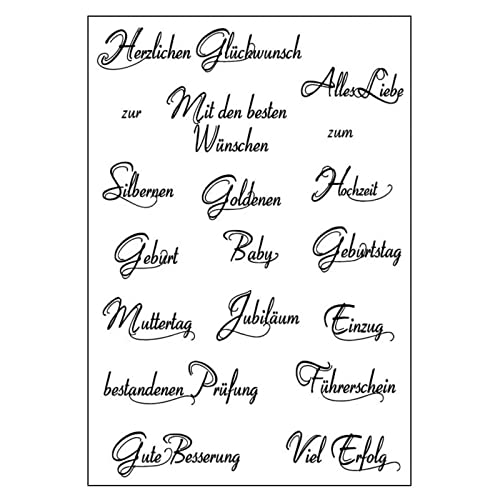 Herzlichen Glückwunsch
Alles Liebe
zur
Mit den besten
Wünschen
zum
Silbernen
Goldenen
Hochzeit
Geburt
Baby
Geburtstag
Muttertag
Jubiläum
Einzug
bestandenen Prüfung
Führerschein
Gute Besserung
Viel Erfolg